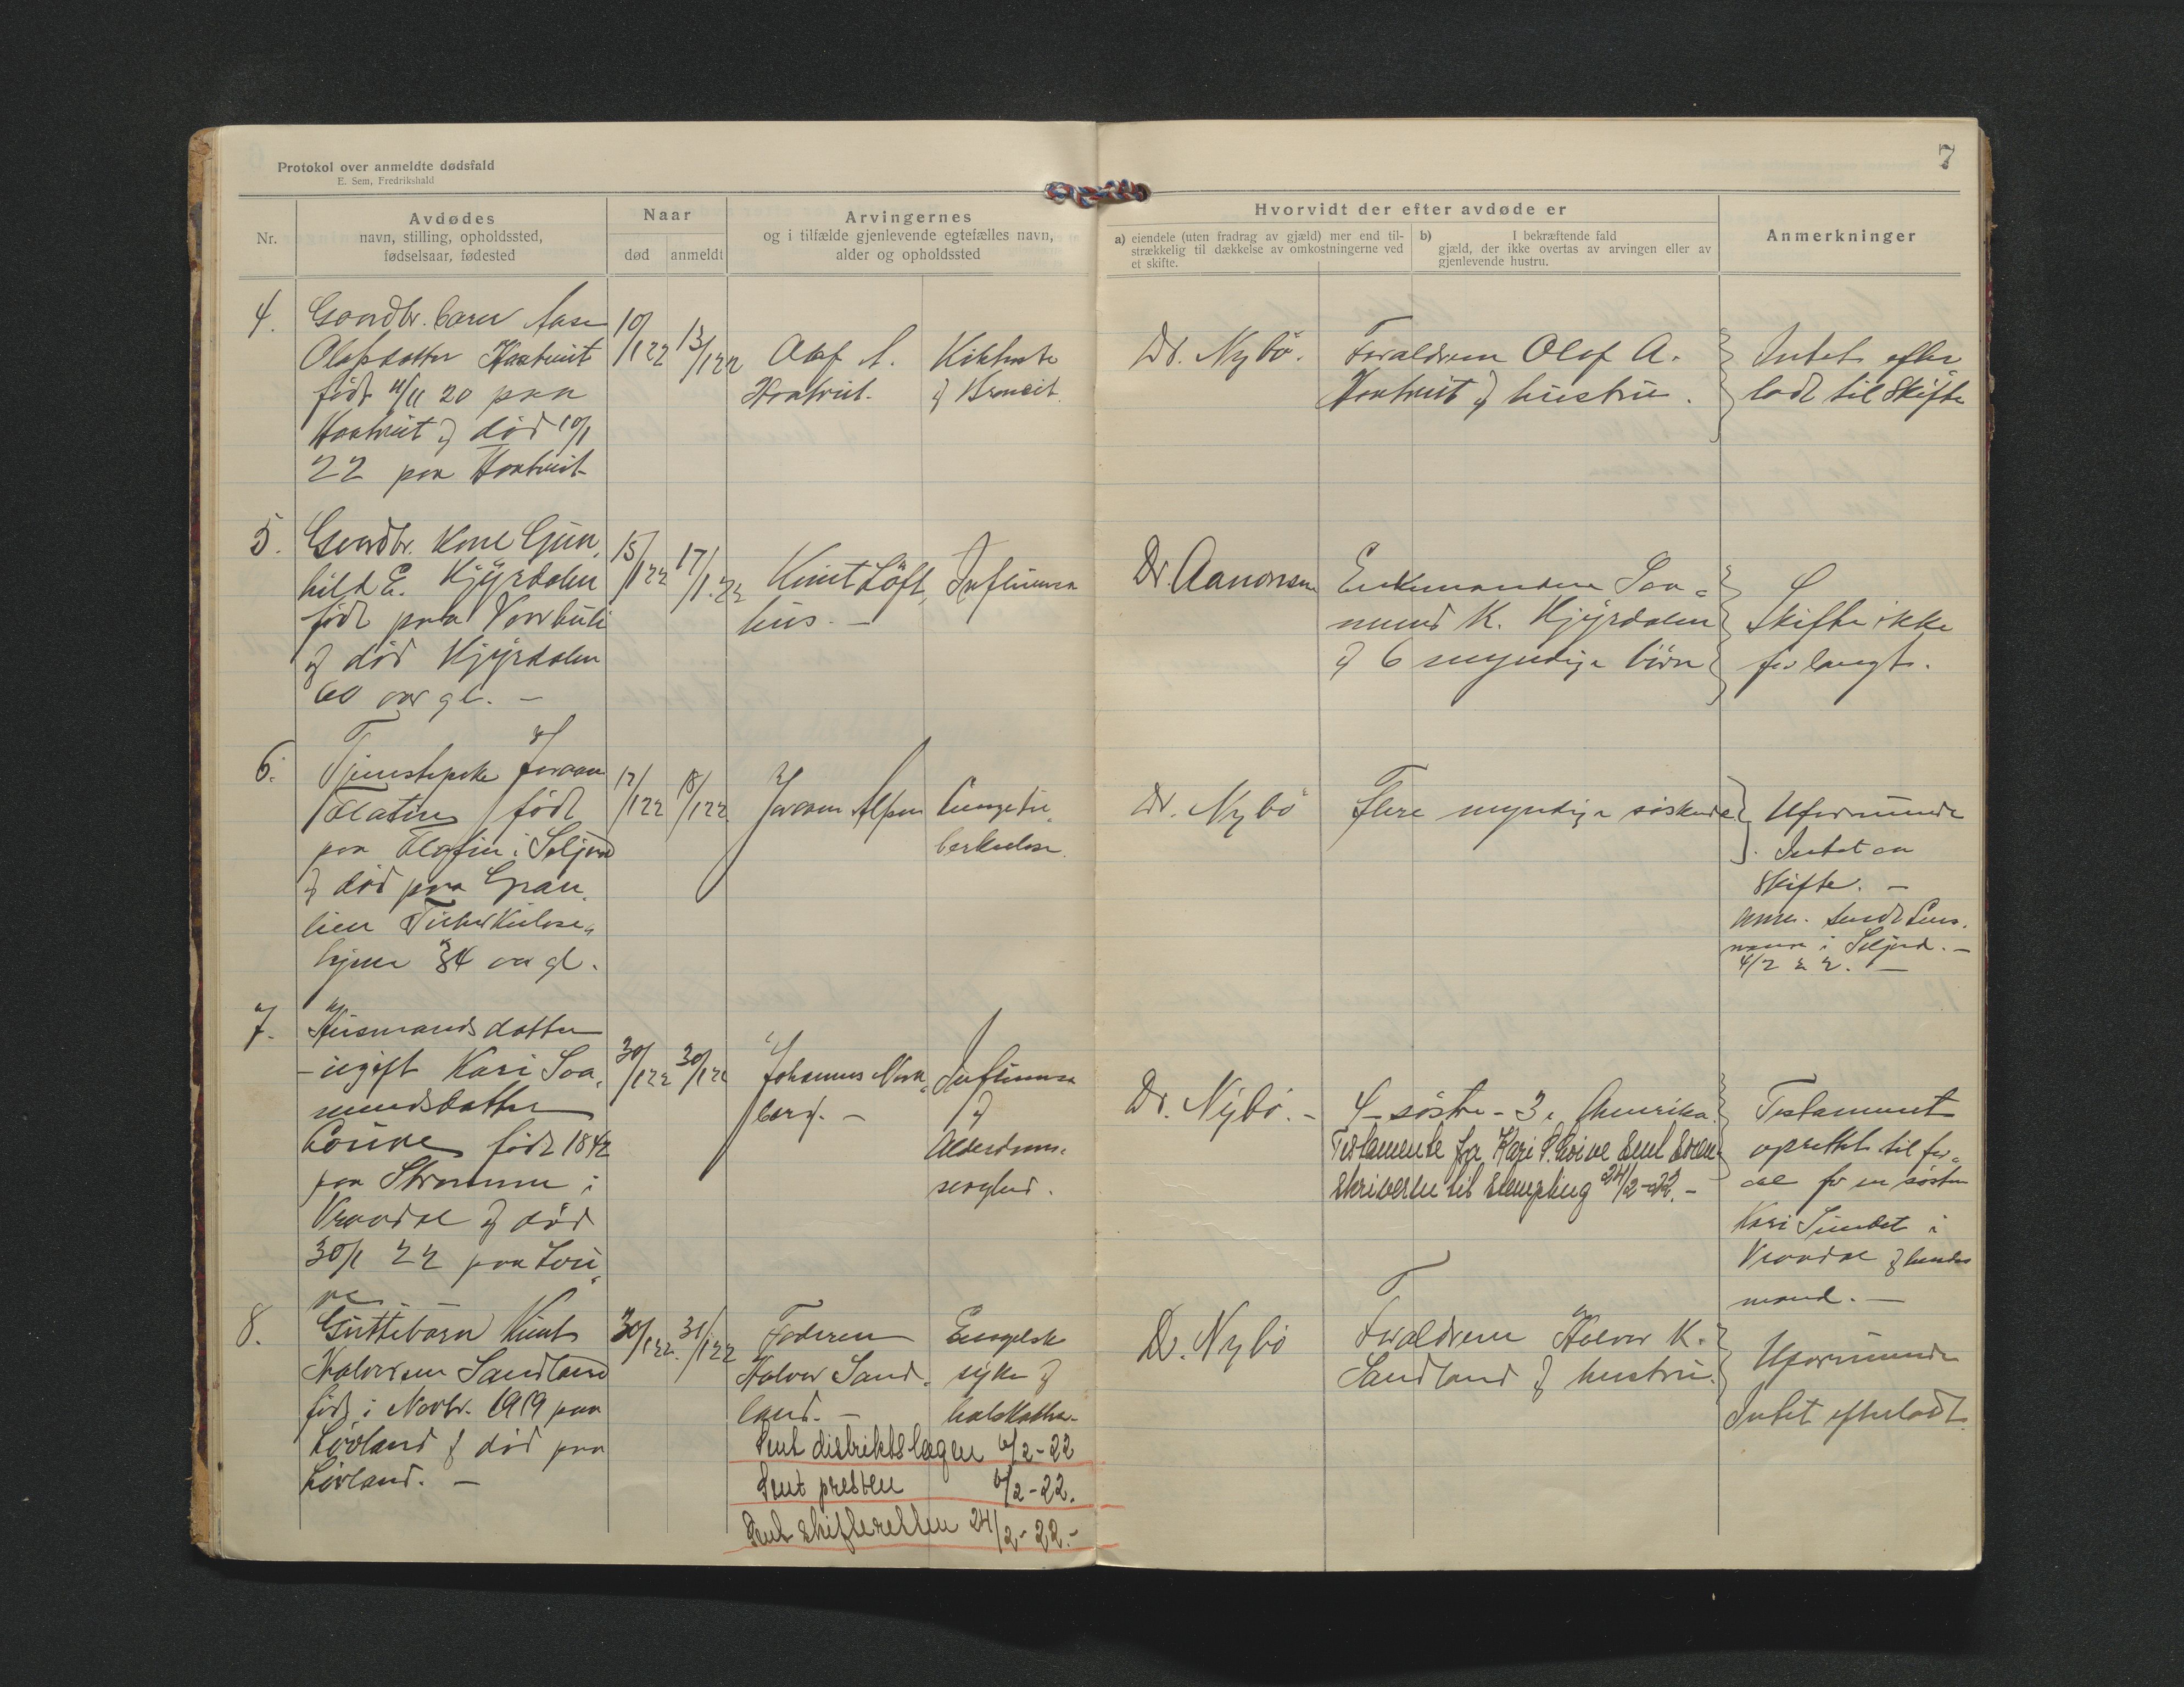 7
Protokol over anmeldte dødsfald
E. Sem, Fredrikshald
Nr.
Avdødes
navn, stilling, opholdssted,
fødselsaar, fødested
Naar
død
anmeldt
Arvingernes
og i tilfælde gjenlevende egtefælles navn,
alder og opholdssted
Hvorvidt der efter avdøde er
a) eiendele (uten fradrag av gjæld) mer end til-
strækkelig til dækkelse av omkostningerne ved
et skifte.
b) I bekræftende fald
gjæld, der ikke overtas av arvingen eller av
gjenlevende hustru.
Anmerkninger
4.
Gaardbr. barn Aase
Olafsdatter
født 4/11 20 paa
død 10/1
22 paa
10/1 22
13/1 22
Olaf A.
Kikhoste
& Bronkit
Dr. Nybö.
Foraldrene Olaf A.
& hustru.
Intet efter
ladt til Skifte
5.
Gaardbr. Kone Gun
hild E. Kjyrdalen
født paa Vaarbuli
& død Kjyrdalen
60 aar gl. -
15/1 22
17/1.22
Knut Löft
hus. -
Influensa
Dr. Aanonsen
Enkemanden Saa-
mund K. Kjyrdalen
& 6 myndige börn
Skifte ikke
forlangt.
6.
Tjenestepike Joraan
Flatin født
paa Flatin i Seljord
& død paa Gran
lien Tuberkulose-
hjem 34 aar gl.
17/1 22
18/1 22
Joraan
Lungetu
berkulose
Dr. Nybö
Flere myndige söskende
Uformuende
Intet an
Skifte. -
Anm. sendt Lens.
mann i Seljord. -
4/2 22. -
7.
Husmands datter
- ugift Kari Saa
mundsdatter
født 1842
paa Strommen i
Vraadal & død
30/1 22 paa
30/1 22
30/1 22
Johannes
berg. -
Influensa
&
Alderdoms-
svaghed.
Dr. Nybö. -
4 søstre - 3 i Amerika
Testamente fra Kari S. Loive sent Soren
skriveren til stempling 24/2-22. -
Testament
oprettet til for-
del for en søster
Kari Sundet i
Vraadal & hendes
mand. -
8.
Guttebarn Knut
Halvorsen Sandland
født i Novbr. 1919 paa
Lövland & død paa
Lövland. -
30/1 22.
31/1 22
Faderen
Halvor Sand
land. -
Engelsk
syke &
halskatar.
Sent distriktslægen 6/2-22
Sent presten 6/2-22.
Sent skifteretten 24/2-22. -
Dr. Nybö
Foraldrene Halvor K.
Sandland & hustru.
Uformuende
Intet efterladt.